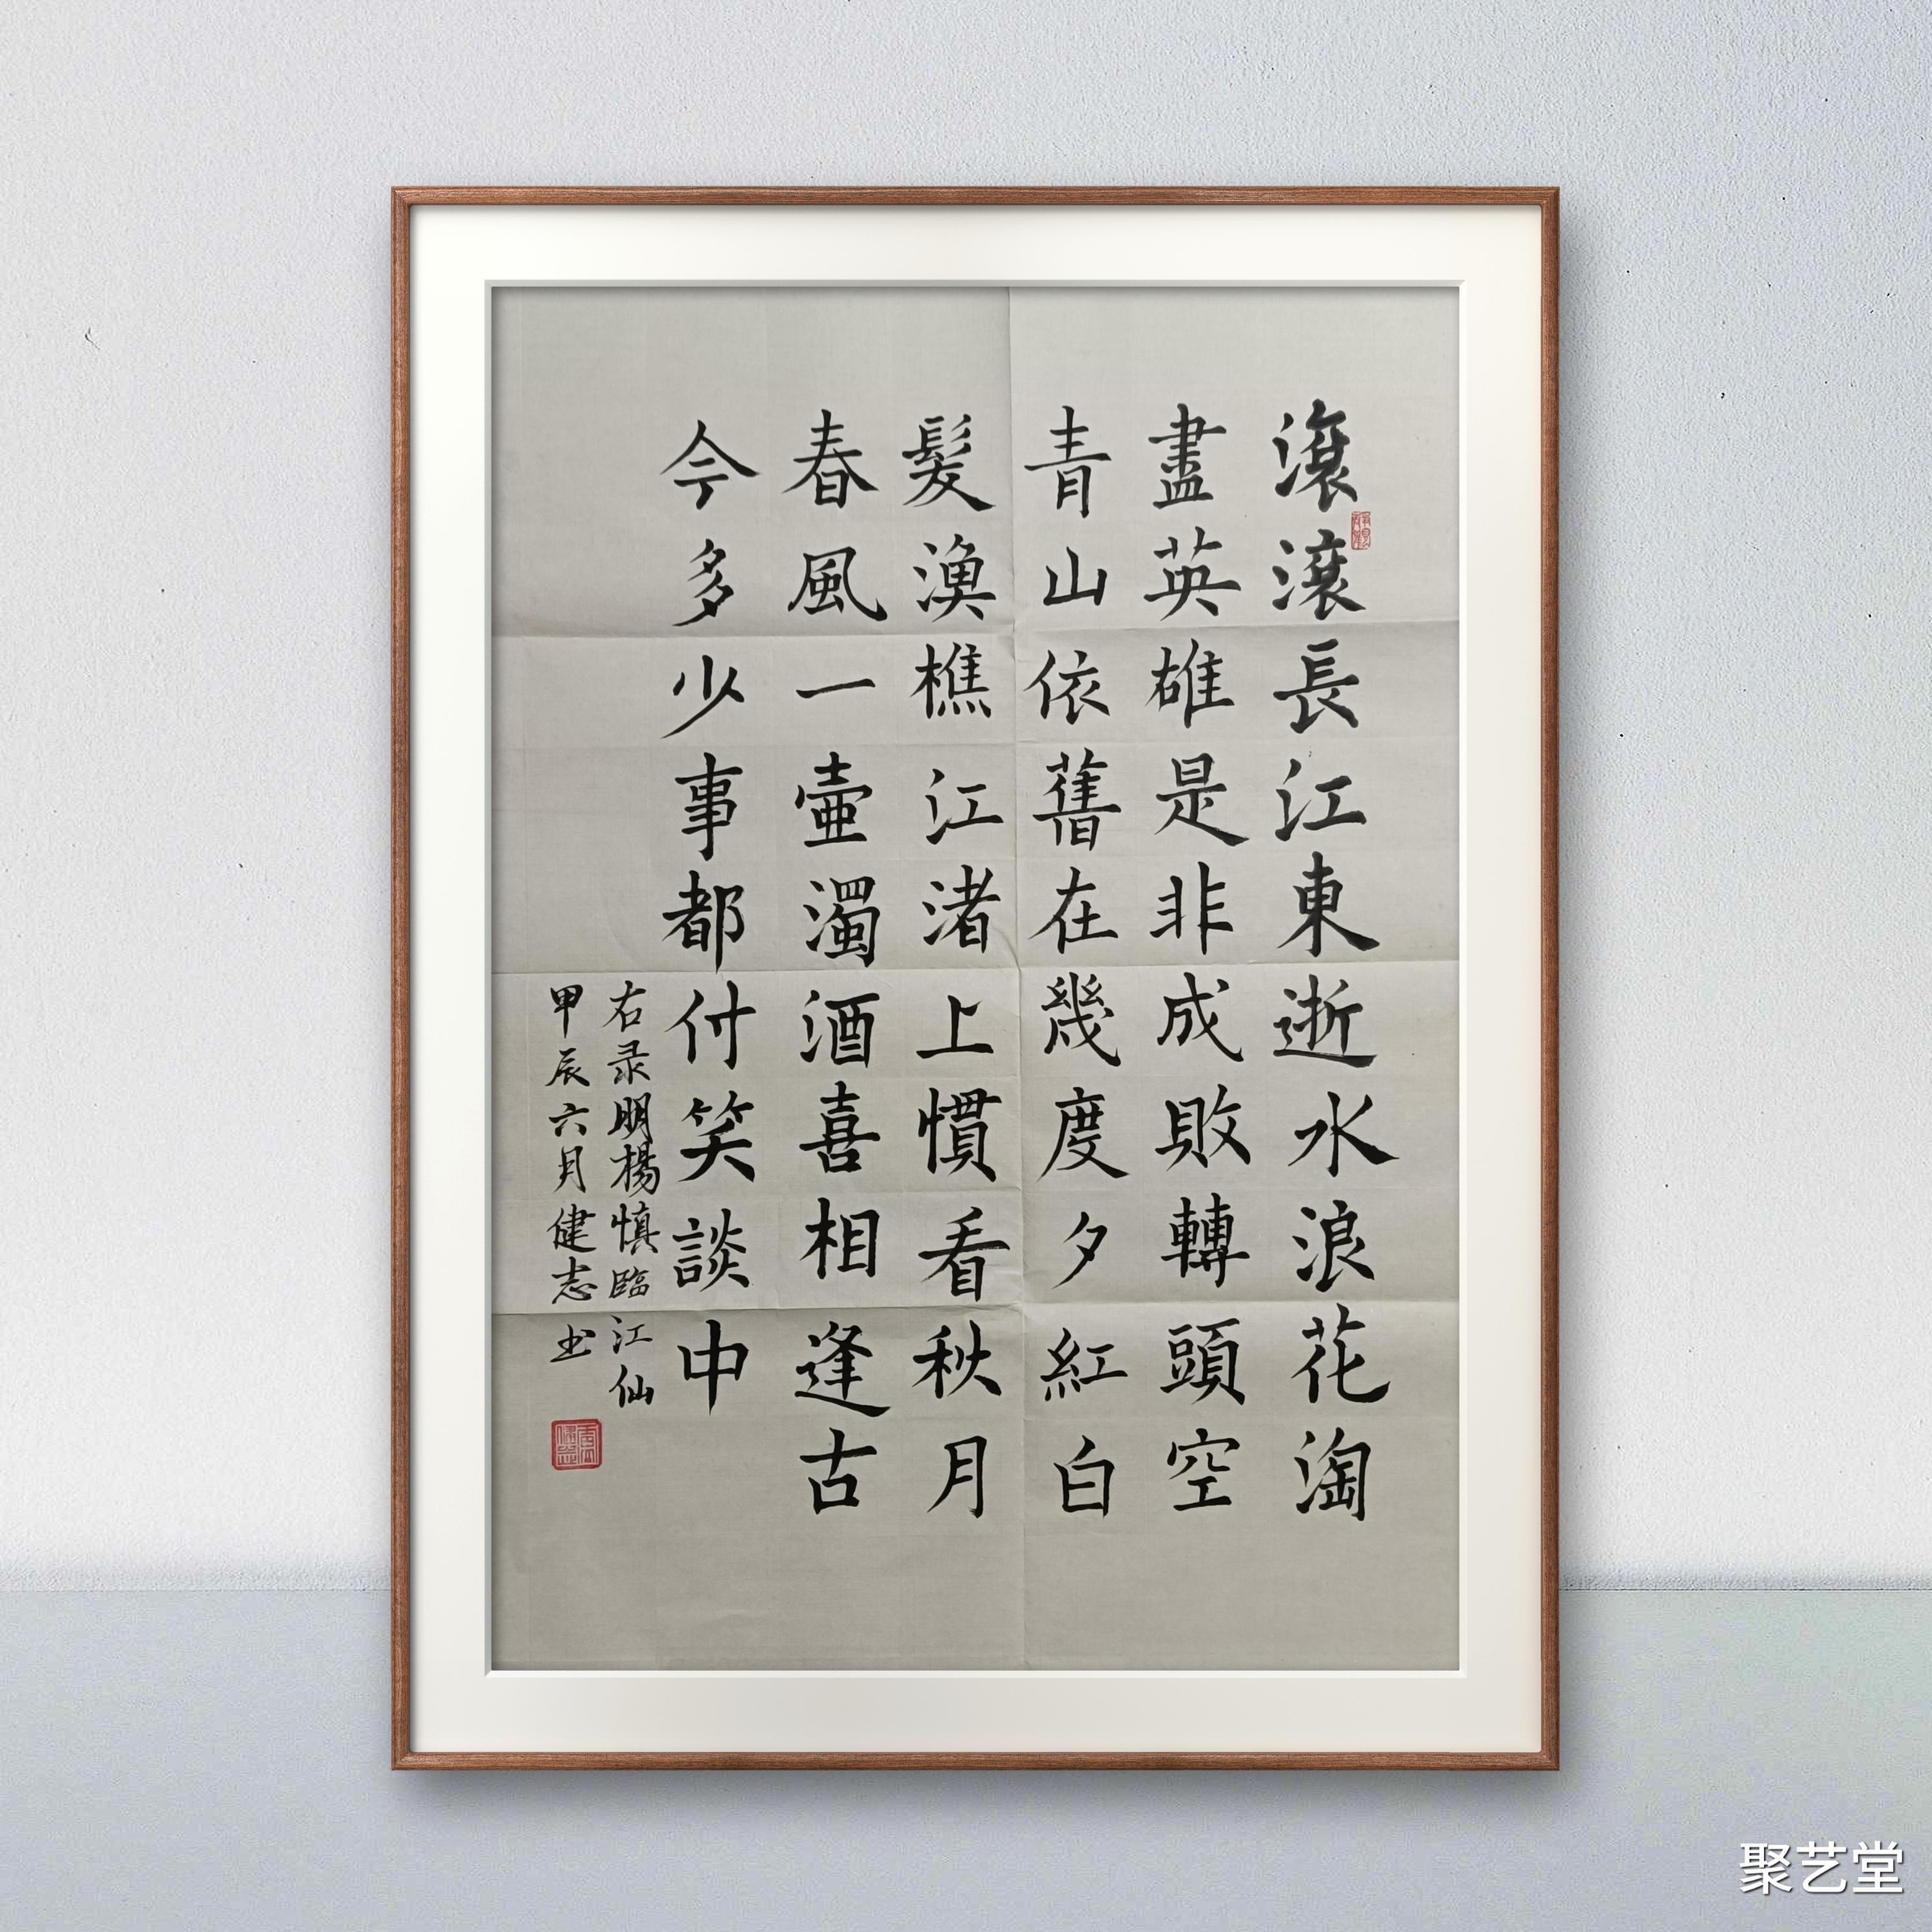 滾滾長江東逝水浪花淘
盡英雄是非成敗轉頭空
青山依舊在幾度夕紅白
髮漁樵江渚上慣看秋月
春風一壺濁酒喜相逢古
今多少事都付笑談中
右录明楊慎臨江仙
甲辰六月健志书
聚艺堂